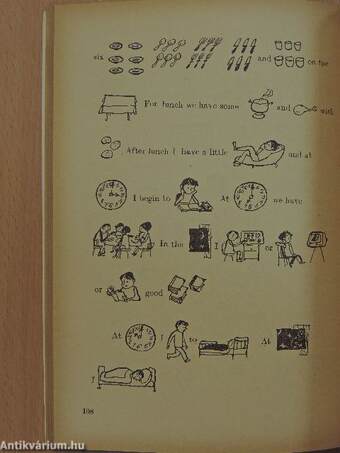 six and on the
For lunch we have some and with
. After lunch I have a little and at
I begin to At we have
in the I or
or good
At I to At
I
108
Antikvárium.hu